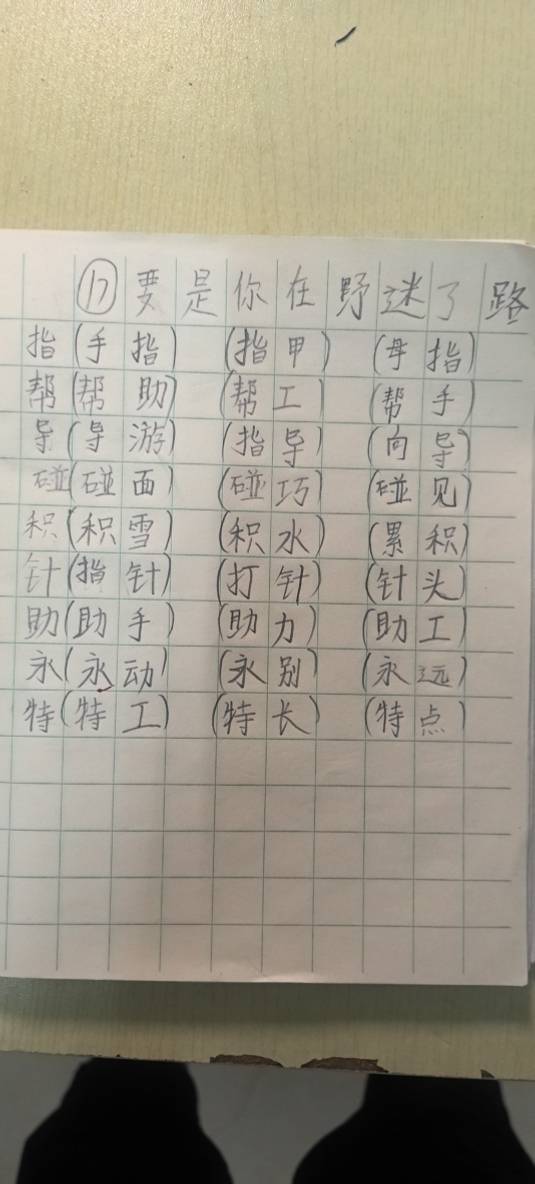 ⑰要是你在野迷了路
指(手指) (指甲) (母指)
帮(帮助) (帮工) (帮手)
导(导游) (指导) (向导)
碰(碰面) (碰巧) (碰见)
积(积雪) (积水) (累积)
针(指针) (打针) (针头)
助(助手) (助力) (助工)
永(永动) (永别) (永远)
特(特工) (特长) (特点)